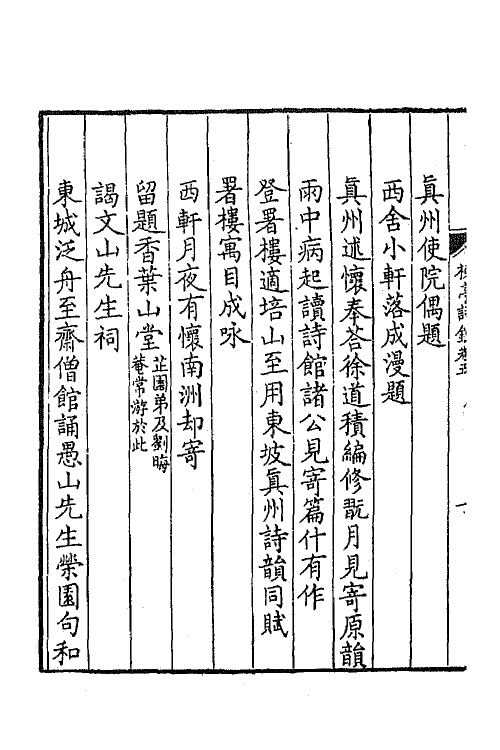 眞州使院偶題
西舍小軒落成漫題
眞州述懷奉荅徐道積編修翫月見寄原韻
雨中病起讀詩館諸公見寄篇什有作
登署樓適培山至用東坡眞州詩韻同賦
署樓寓目成咏
西軒月夜有懷南洲却寄
留題香葉山堂芷園弟及劉晦菴常游於此
謁文山先生祠
東城泛舟至齋僧館誦愚山先生榮園句和